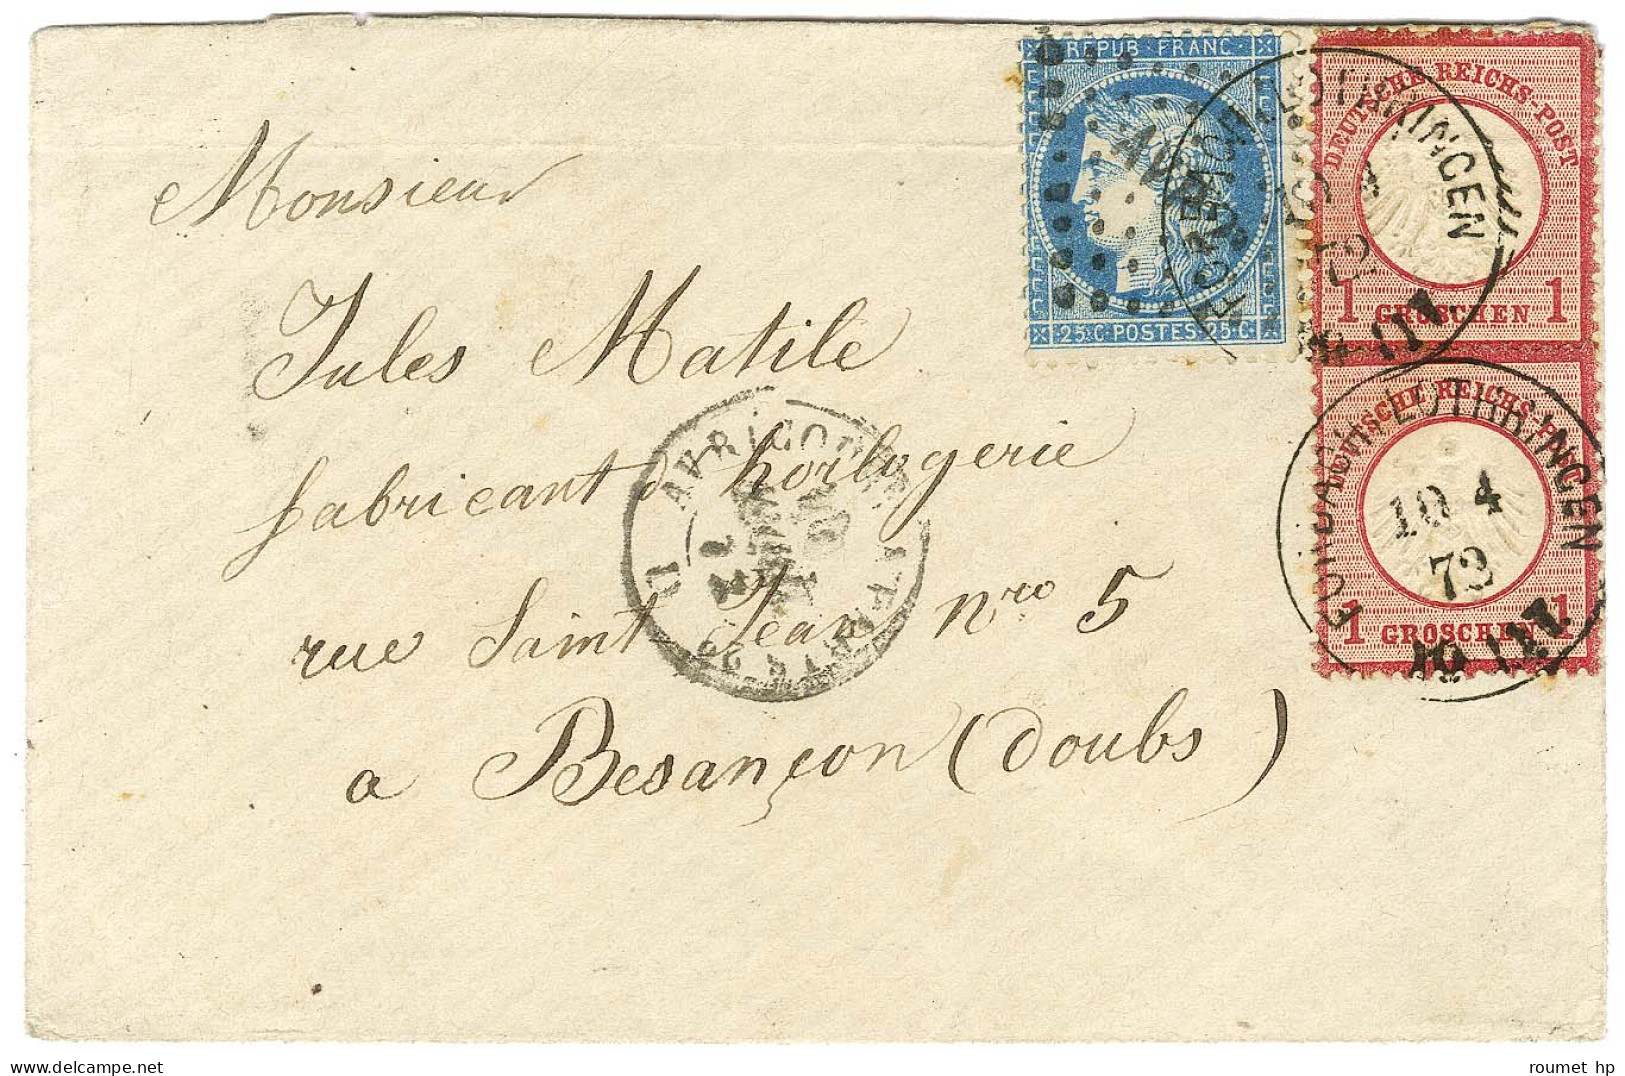 REPUB · FRANC ·
25 · C · POSTES · 25 · C ·
DEUTSCHE REICHS-POST
1 GROSCHEN 1
LOTHRINGEN
72
DEUTSCHE REICHS-POST
1 GROSCHEN 1
LOTHRINGEN
10 4
72
Monsieur
Jules Matile
fabricant d' horlogerie
rue Saint Jean nro 5
a Besançon (Doubs)
AVRICOURT A PARIS
roumet hp